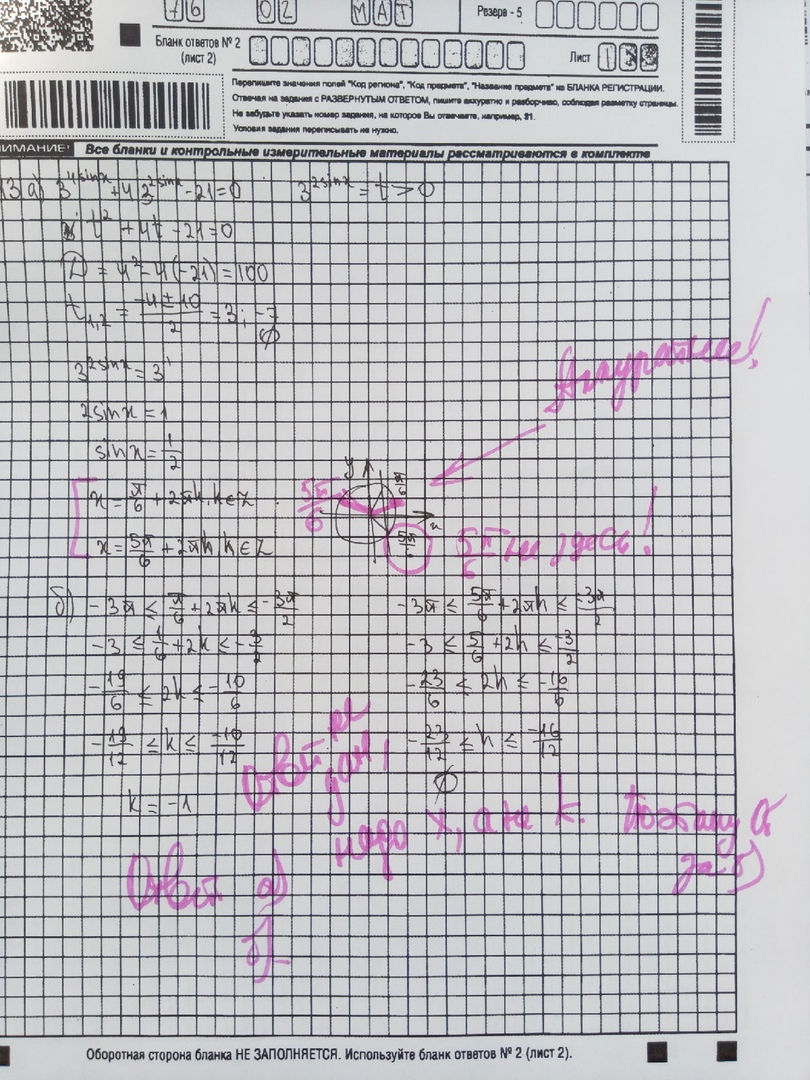 76 02 МАТ Резерв - 5
Бланк ответов № 2
(лист 2)
Лист
Перепишите значения полей "Код региона", "Код предмета", "Название предмета" из БЛАНКА РЕГИСТРАЦИИ.
Отвечая на задания с РАЗВЕРНУТЫМ ОТВЕТОМ, пишите аккуратно и разборчиво, соблюдая разметку страницы.
Не забудьте указать номер задания, на которое Вы отвечаете, например, 31.
Условия задания переписывать не нужно.
НИМАНИЕ! Все бланки и контрольные измерительные материалы рассматриваются в комплекте
13 а) 3^(4sinx) + 4·3^(2sinx) - 21 = 0 3^(2sinx) = t > 0
t² + 4t - 21 = 0
D = 4² - 4(-21) = 100
t₁,₂ = (-4 ± 10)/2 = 3; -7
∅
Аккуратнее!
3^(2sinx) = 3¹
2sinx = 1
sinx = 1/2
y
x = π/6 + 2πk, k ∈ Z 5π/6 π/6
x
x = 5π/6 + 2πn, n ∈ Z 5π/6 5π/6 не здесь!
б) -3π ≤ π/6 + 2πk ≤ -3π/2 -3π ≤ 5π/6 + 2πn ≤ -3π/2
-3 ≤ 1/6 + 2k ≤ -3/2 -3 ≤ 5/6 + 2n ≤ -3/2
-19/6 ≤ 2k ≤ -10/6 -23/6 ≤ 2n ≤ -16/6
-19/12 ≤ k ≤ -10/12 -23/12 ≤ n ≤ -16/12
∅
k = -1
Ответ не
дан,
надо x, а не k. Поэтому 0
за б)
Ответ а)
б)
Оборотная сторона бланка НЕ ЗАПОЛНЯЕТСЯ. Используйте бланк ответов № 2 (лист 2).